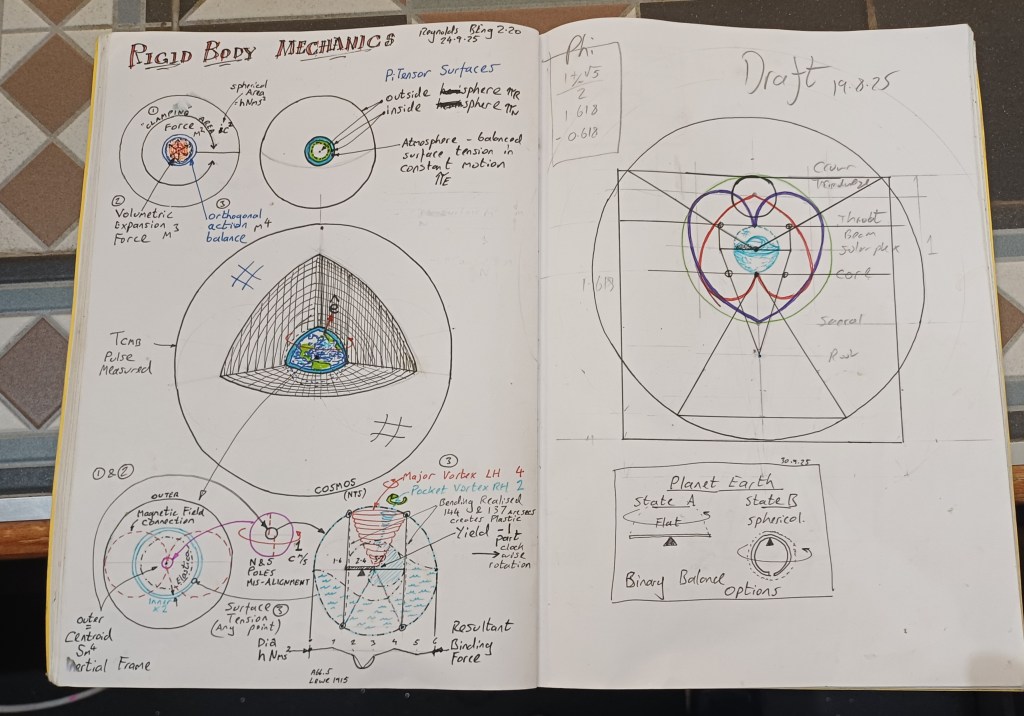 RIGID BODY MECHANICS
Reynolds BEng 2.20
24.9.25
spherical
Area
= hNms²
①
CLAMPING AREA
Force
M²
②
Volumetric
Expansion
Force M³
③
Orthogonal
action
balance M⁴
Pi Tensor Surfaces
outside sphere
inside sphere
Atmosphere - balanced
surface tension in
constant motion
TCMB
Pulse
Measured
COSMOS
(NTS)
① & ②
OUTER
Magnetic Field
Connection
Elastica
Inner
outer
=
Centroid
Sm⁴
Inertial Frame
N&S
POLES
MIS-ALIGNMENT
Surface ③
Tension
(Any point)
Dia
hNms²
③
Major Vortex LH 4
Pocket Vortex RH 2
Bending Realised
144 & 137 arcsecs
creates Plastic
Yield - 1
part
clock
wise
rotation
1 2 3 4 5 6
Resultant
Binding
Force
Lowe 1915
Phi
1+√5
2
1.618
- 0.618
Draft 19.8.25
Crown
Throat
Core
Sacral
Root
1
1.618
30.9.25
Planet Earth
State A
Flat
State B
spherical.
Binary Balance
Options